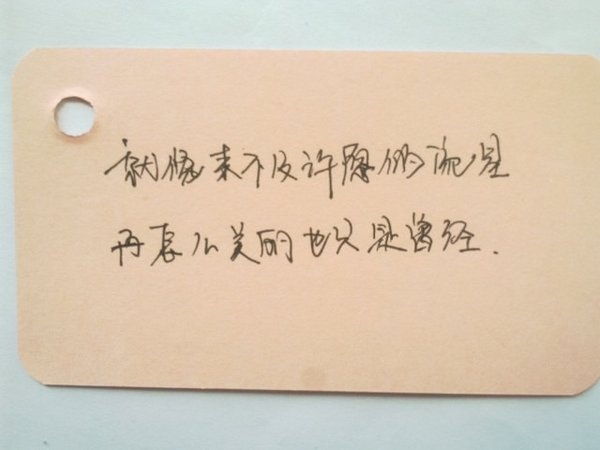 就像来不及许愿的流星
再怎么美丽也只是曾经.